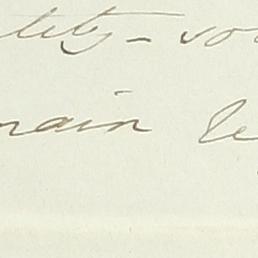 lity - so
main le